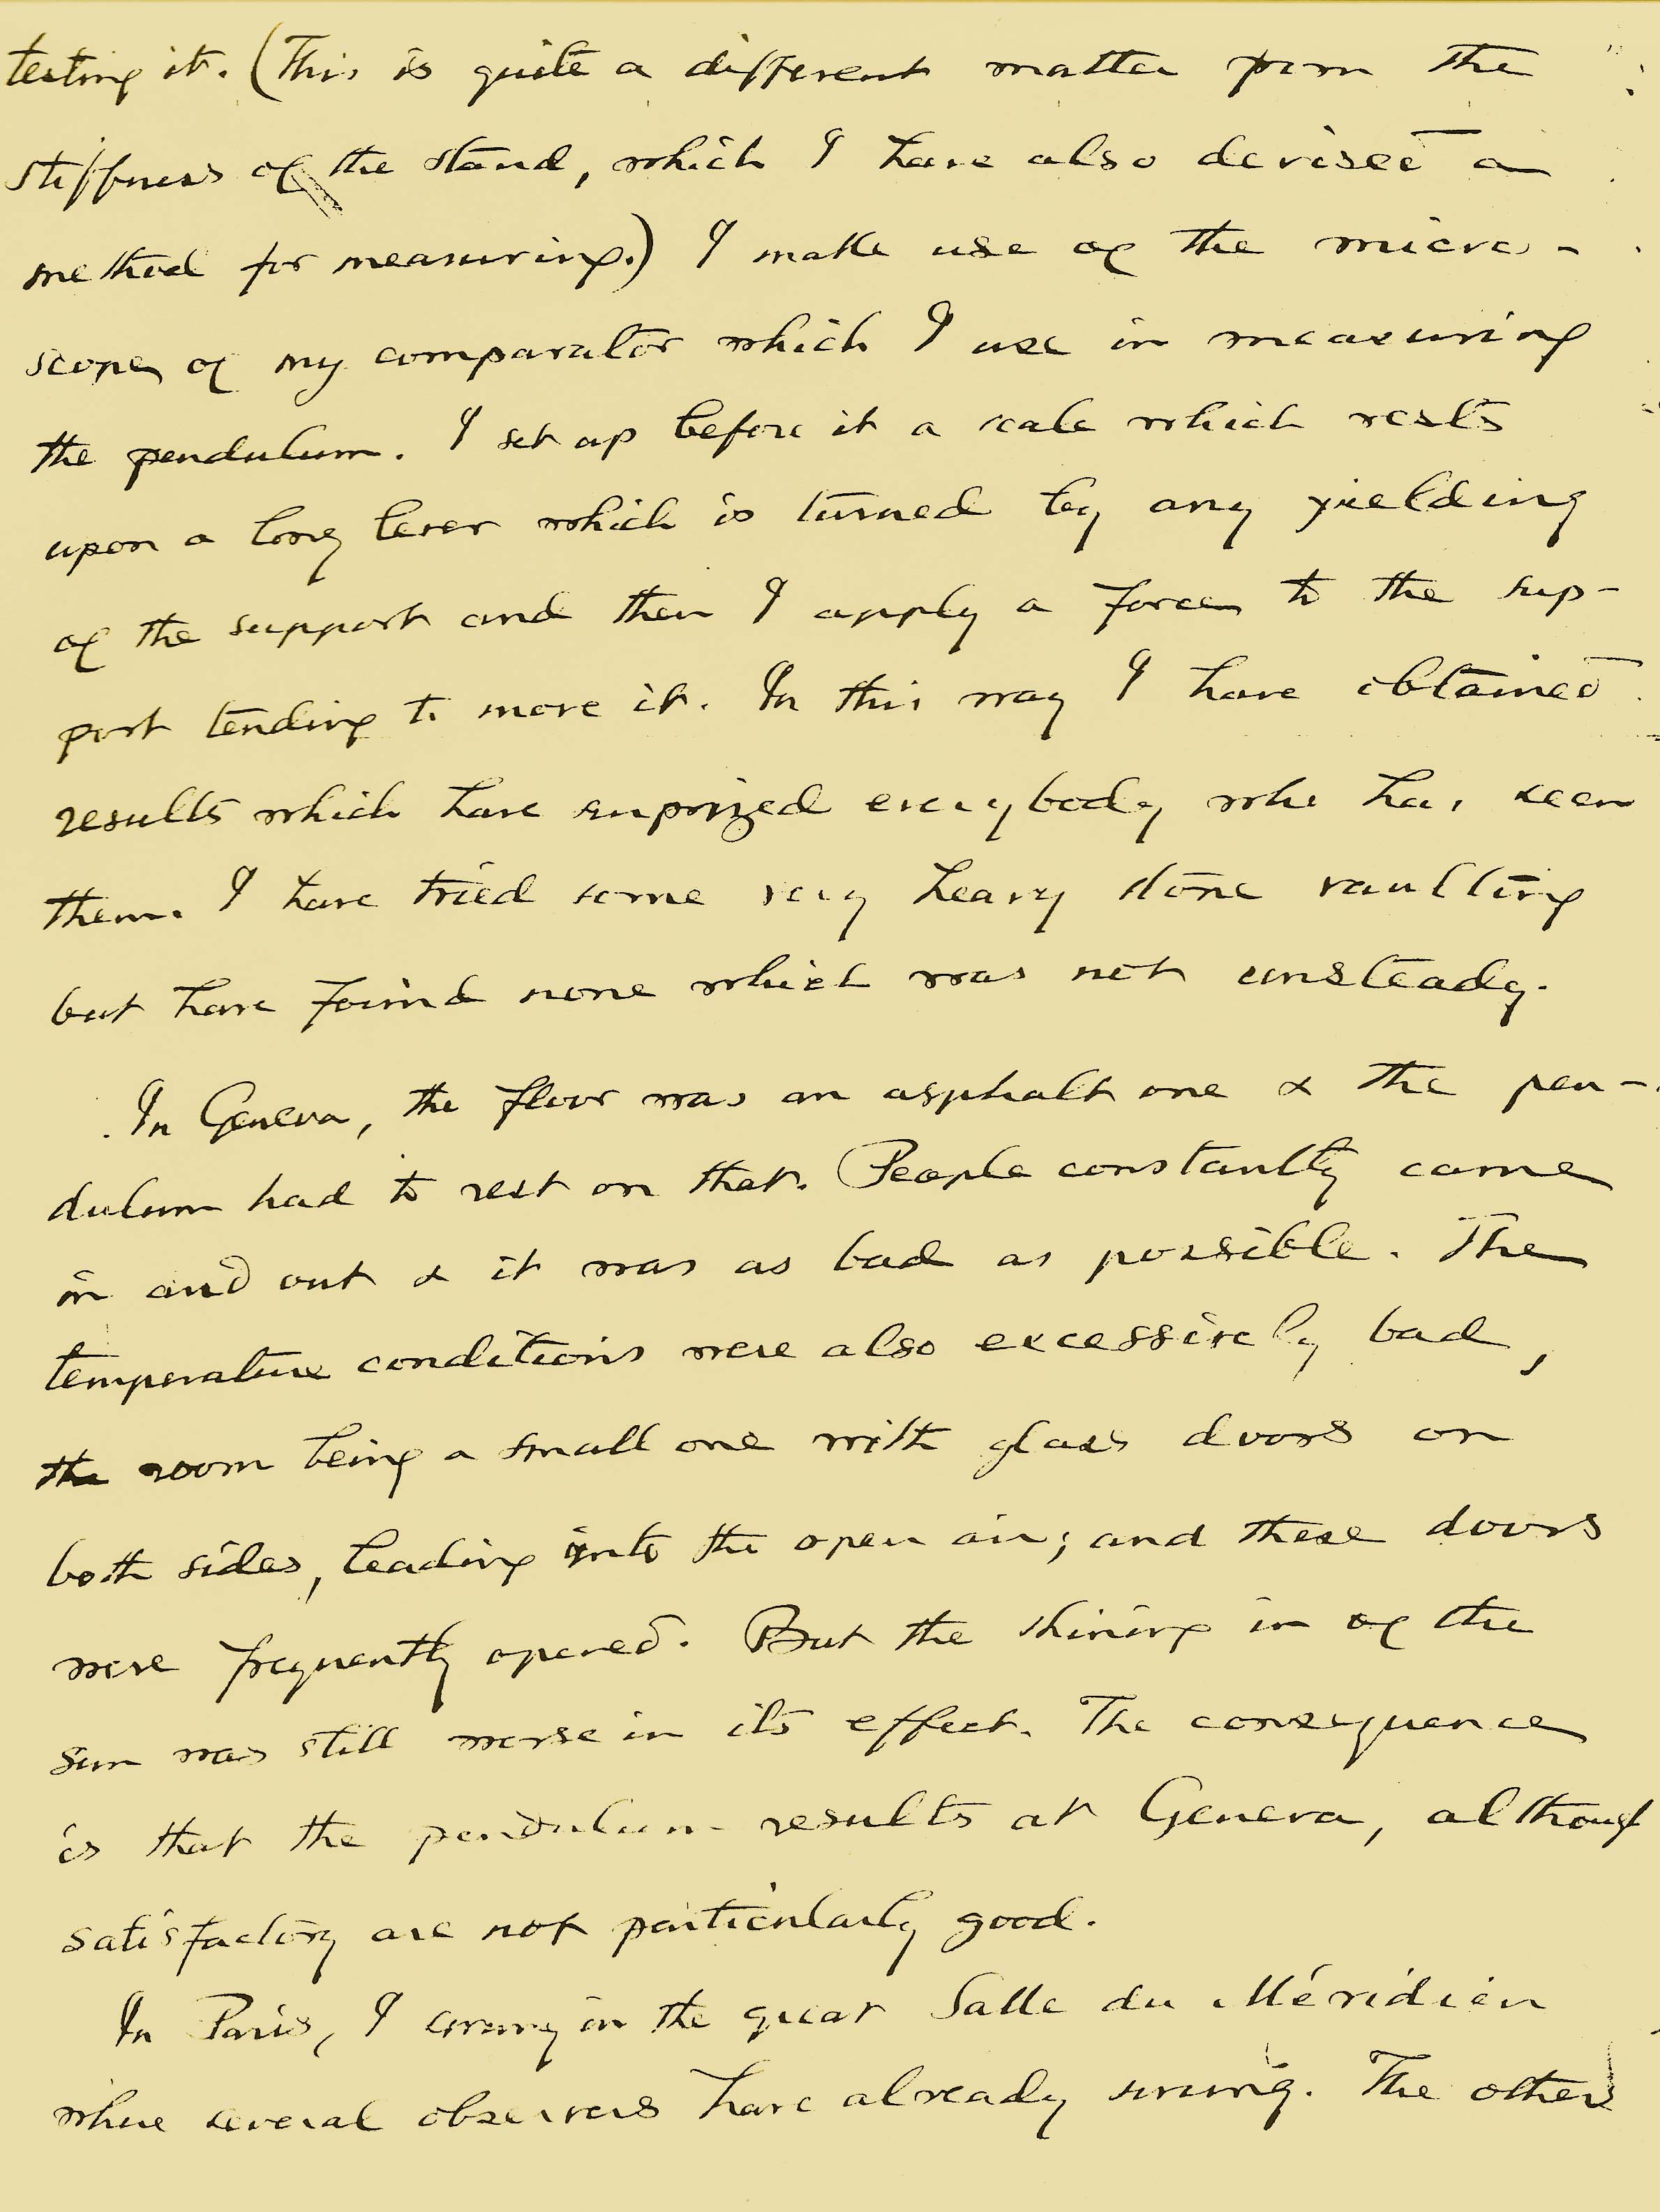 testing it. (This is quite a different matter from the
stiffness of the stand, which I have also devised a
method for measuring.) I make use of the micro-
scope of my comparator which I use in measuring
the pendulum. I set up before it a scale which rests
upon a long lever which is turned by any yielding
of the support and then I apply a force to the sup-
port tending to move it. In this way I have obtained
results which have surprized everybody who has seen
them. I have tried some very heavy stone vaulting
but have found none which was not unsteady.
In Geneva, the floor was an asphalt one & the pen-
dulum had to rest on that. People constantly came
in and out & it was as bad as possible. The
temperature conditions were also excessively bad,
the room being a small one with glass doors on
both sides, leading into the open air; and these doors
were frequently opened. But the shining in of the
sun was still worse in its effect. The consequence
is that the pendulum results at Geneva, although
satisfactory are not particularly good.
In Paris, I swung in the great Salle du Méridien
where several observers have already swung. The others